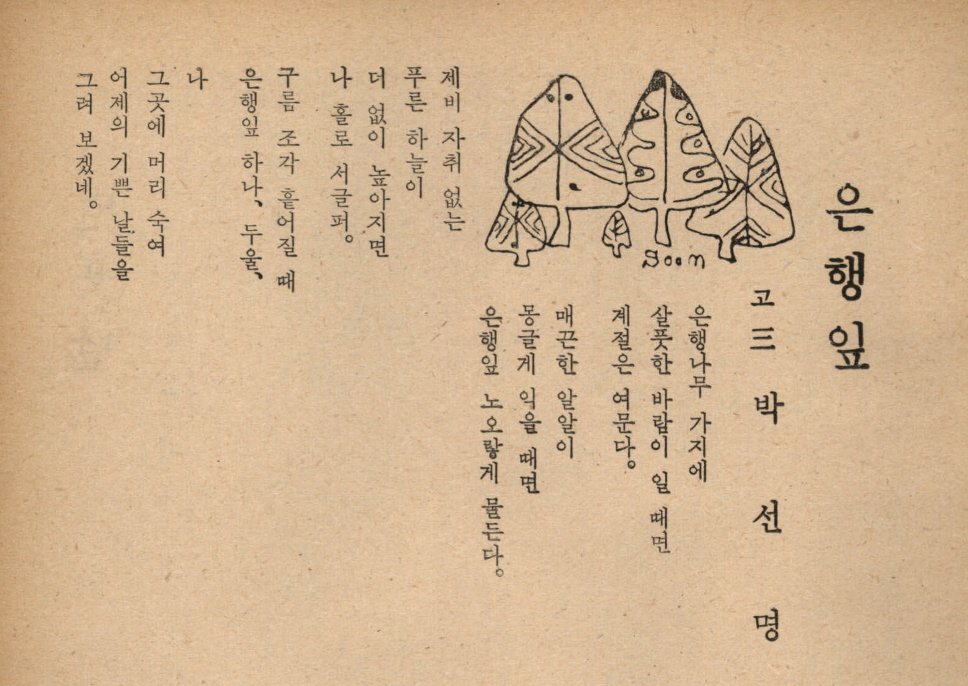 은행잎
고三 박 선 명
은행나무 가지에
살풋한 바람이 일 때면
계절은 여문다。
매끈한 알알이
몽글게 익을 때면
은행잎 노오랗게 물든다。
제비 자취 없는
푸른 하늘이
더 없이 높아지면
나 홀로 서글퍼。
구름 조각 흩어질 때
은행잎 하나、두울、
나
그곳에 머리 숙여
어제의 기쁜 날들을
그려 보겠네。
Soon